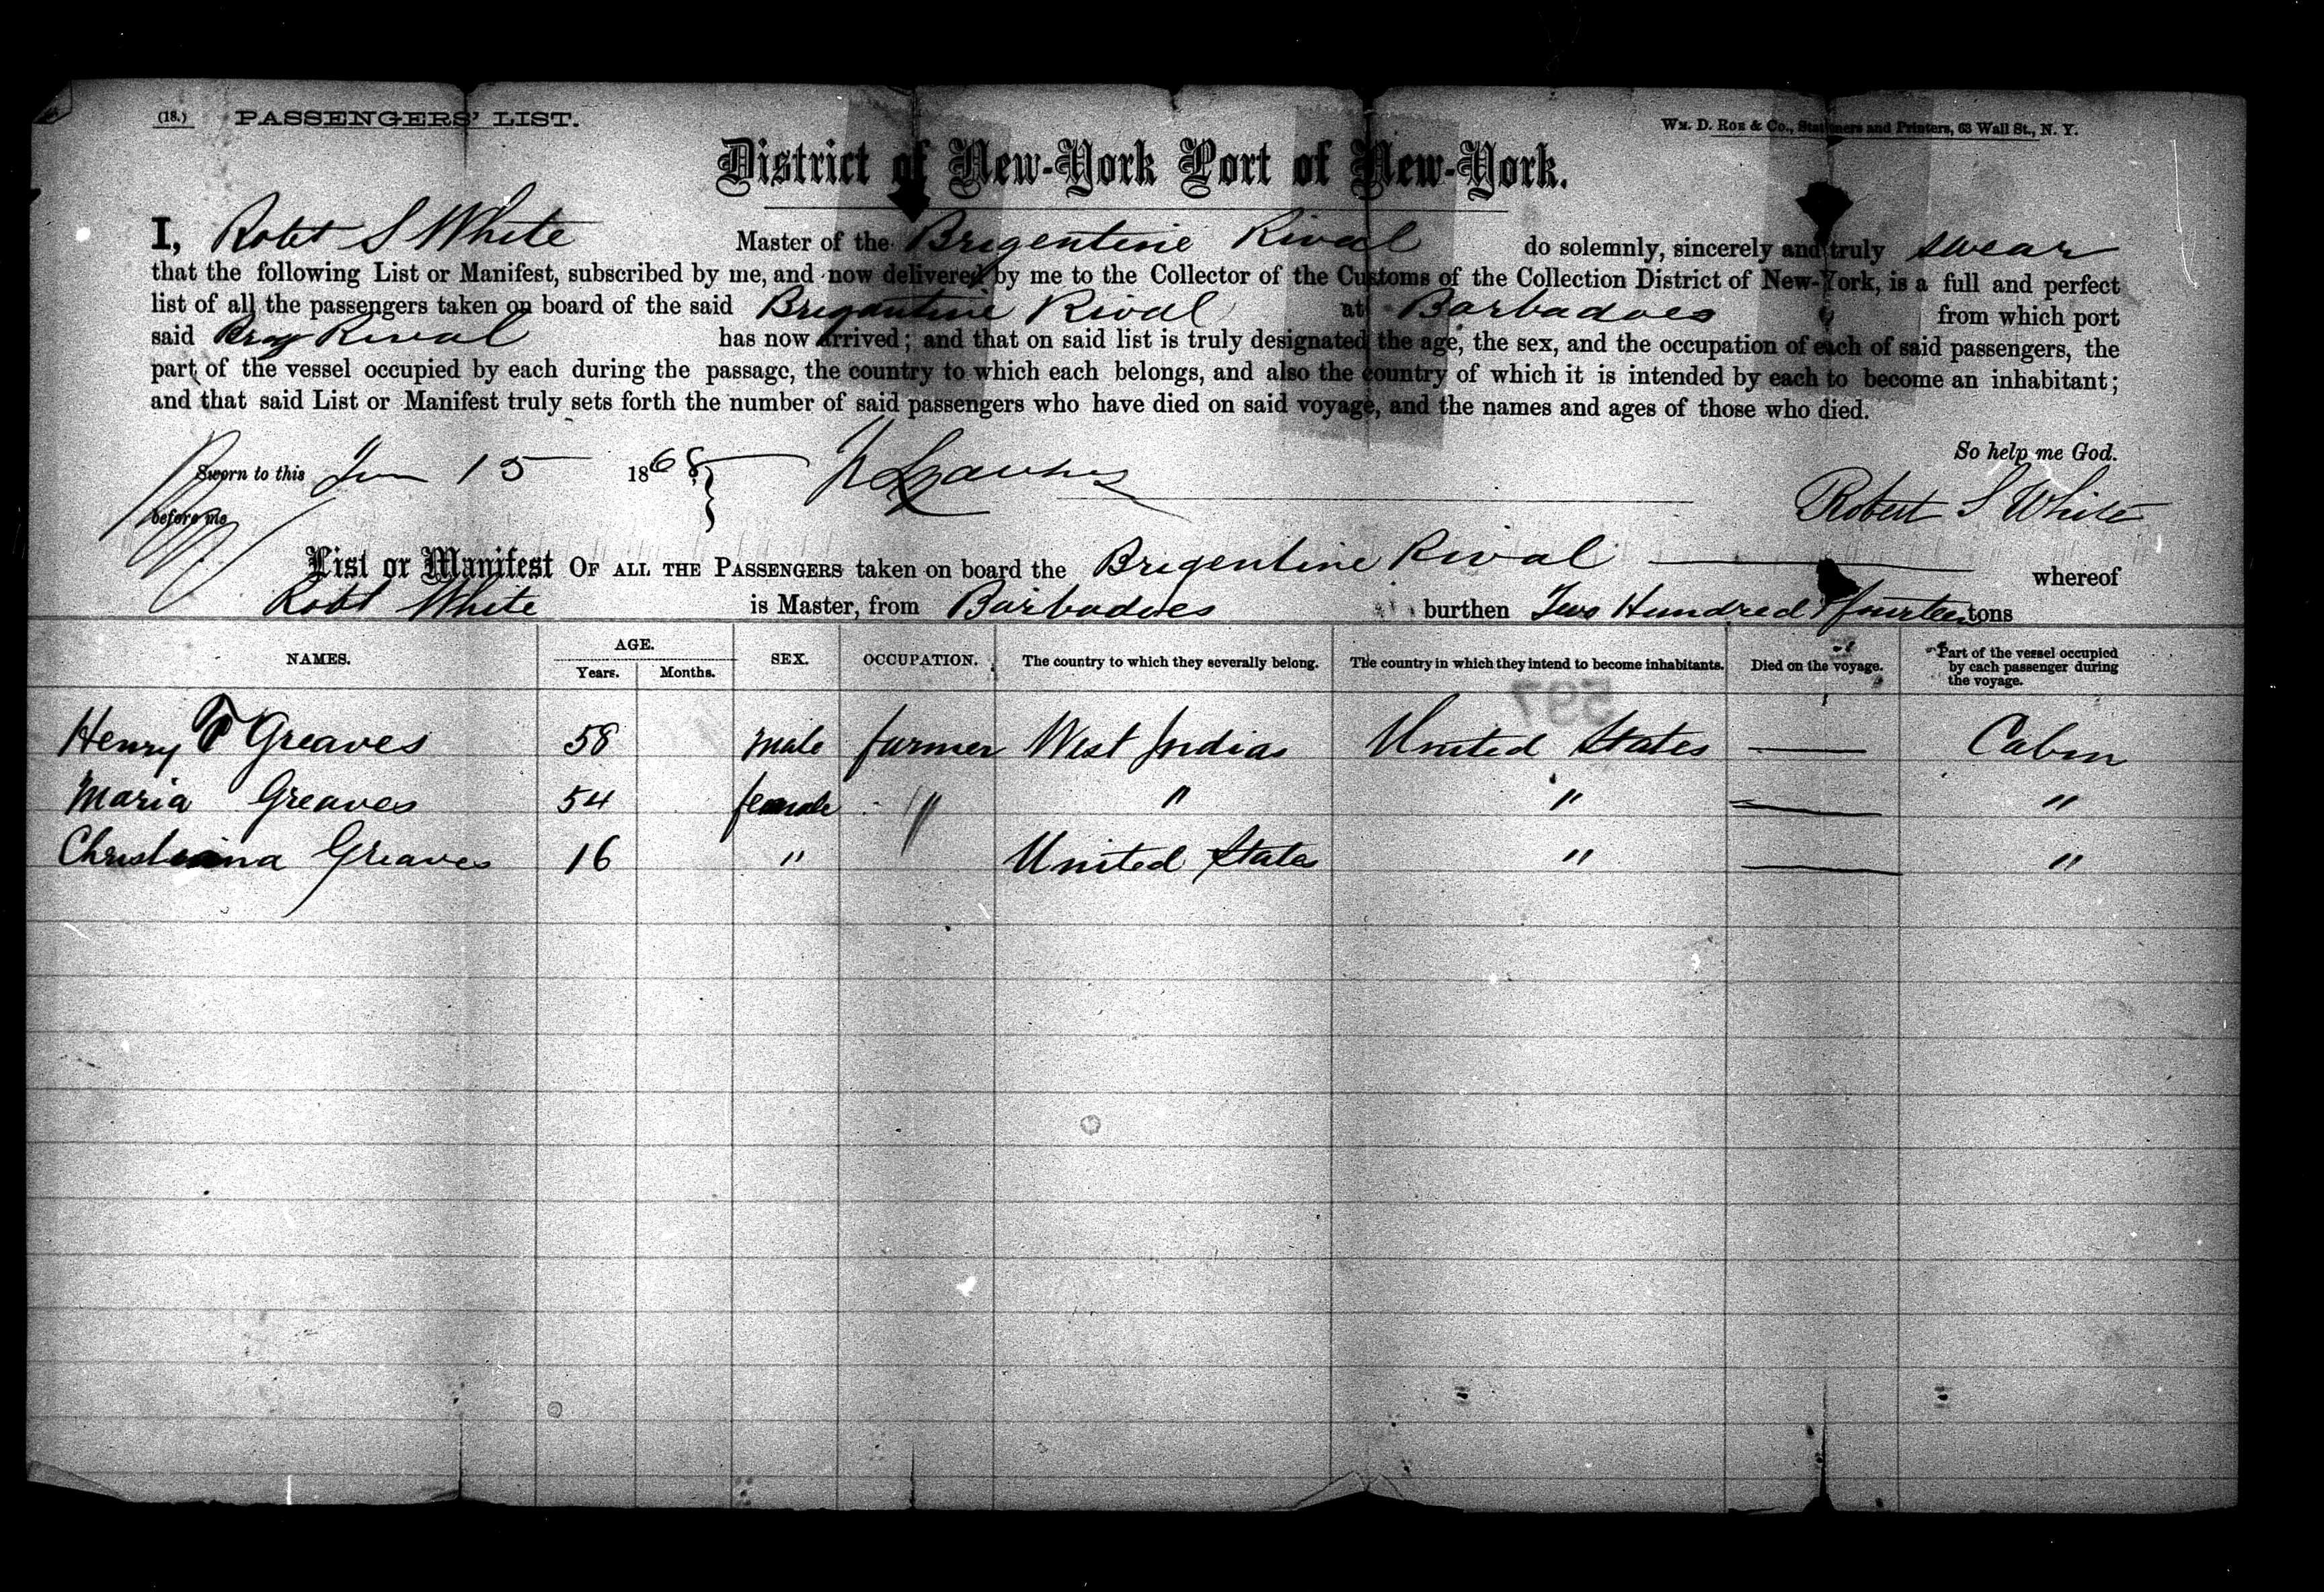 (18.) PASSENGERS' LIST.
WM. D. ROE & CO., Stationers and Printers, 63 Wall St., N. Y.
District of New-York Port of New-York.
I, Robt S White Master of the Brigentine Rival do solemnly, sincerely and truly swear
that the following List or Manifest, subscribed by me, and now delivered by me to the Collector of the Customs of the Collection District of New-York, is a full and perfect
list of all the passengers taken on board of the said Brigantine Rival at Barbadoes from which port
said Brig Rival has now arrived; and that on said list is truly designated the age, the sex, and the occupation of each of said passengers, the
part of the vessel occupied by each during the passage, the country to which each belongs, and also the country of which it is intended by each to become an inhabitant;
and that said List or Manifest truly sets forth the number of said passengers who have died on said voyage, and the names and ages of those who died.
So help me God.
Sworn to this 15 1868
before me
Robert S White
List or Manifest OF ALL THE PASSENGERS taken on board the Brigentine Rival whereof
Robt White is Master, from Barbadoes burthen Two Hundred fourteen tons
NAMES. AGE. Years. Months. SEX. OCCUPATION. The country to which they severally belong. The country in which they intend to become inhabitants. Died on the voyage. Part of the vessel occupied by each passenger during the voyage.
597
Henry T Greaves 58 male farmer West Indias United States — Cabin
Maria Greaves 54 female " " " — "
Christiana Greaves 16 " United States " — "